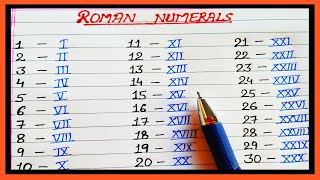 ROMAN NUMERALS
1 – I 11 – XI 21 – XXI
2 – II 12 – XII 22 – XXII
3 – III 13 – XIII 23 – XXIII
4 – IV 14 – XIV 24 – XXIV
5 – V 15 – XV 25 – XXV
6 – VI 16 – XVI 26 – XXVI
7 – VII 17 – XVII 27 – XXVII
8 – VIII 18 – XVIII 28 – XXVIII
9 – IX 19 – XIX 29 – XXIX
10 – X 20 – XX 30 – XXX